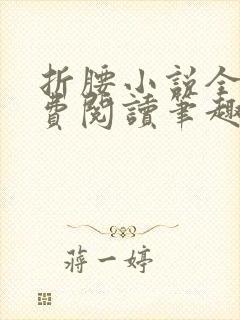 折腰小説全
費閱讀筆趣
蔣一婷